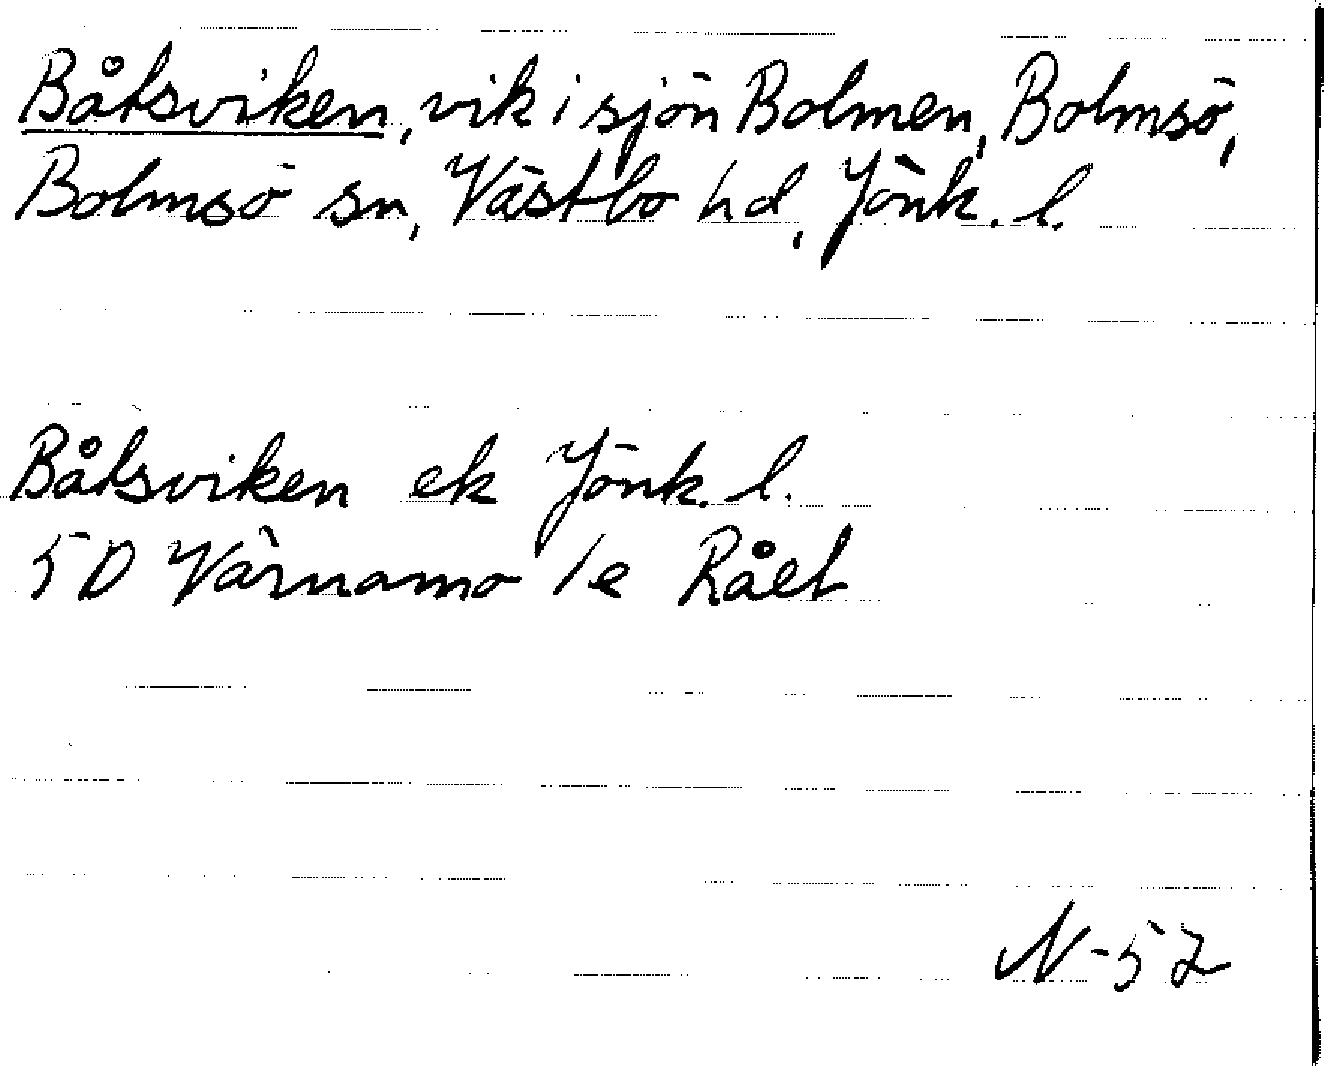 Båtsviken, vik i sjön Bolmen, Bolmsö,
Bolmsö sn, Västbo hd, Jönk. l.
Båtsviken ek Jönk. l.
5D Värnamo 1e Rået
N-52